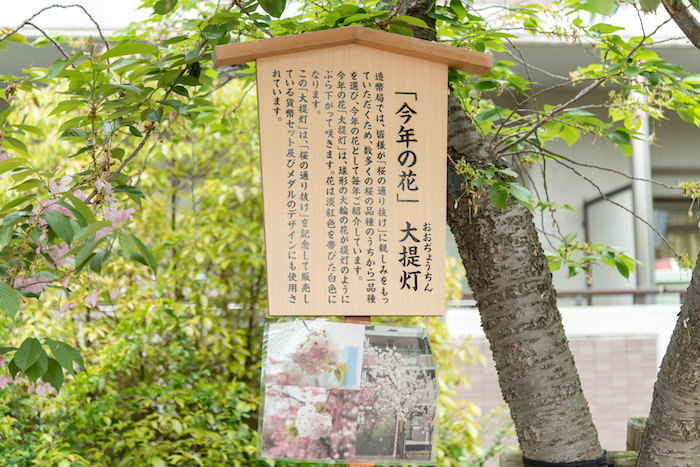 「今年の花」 大提灯
おおぢょうちん
造幣局では、皆様が「桜の通り抜け」に親しみをもっ
ていただくため、数多くの桜の品種のうちから一品種
を選び、今年の花として毎年ご紹介しています。
今年の花「大提灯」は、球形の大輪の花が提灯のように
ぶら下がって咲きます。花は淡紅色を帯びた白色に
なります。
この「大提灯」は、「桜の通り抜け」を記念して販売し
ている貨幣セット及びメダルのデザインにも使用さ
れています。